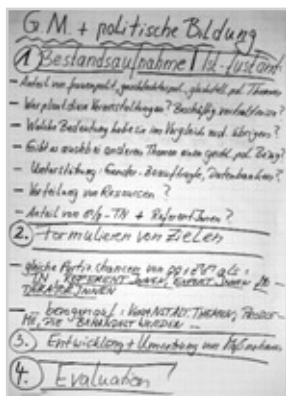 G.M. + politische Bildung
1. Bestandsaufnahme / Ist-Zustand
- Anteil von frauenpolit., geschlechterpol., gleichstell. pol. Themen
- Wer plant die Veranstaltungen? Beschäftig.verhältnisse?
- Welche Bedeutung haben sie im Vergleich mit übrigen?
- Gibt es auch bei anderen Themen einen geschl. pol. Bezug?
- Unterstützung: Gender-Beauftragte, Datenbanken?
- Verteilung von Ressourcen?
- Anteil von ♀/♂ -TN + ReferentInnen?
2. Formulieren von Zielen
- gleiche Partiz. chancen von ♀♀ ♂♂ als:
TN, REFERENT_INNEN, EXPERT_INNEN, MO-
DERATOR_INNEN
- bezogen auf: VERANSTALT. THEMEN, PROBLE-
ME, DIE BEHANDELT WERDEN ...
3. Entwicklung + Umsetzung von Maßnahmen
4. Evaluation